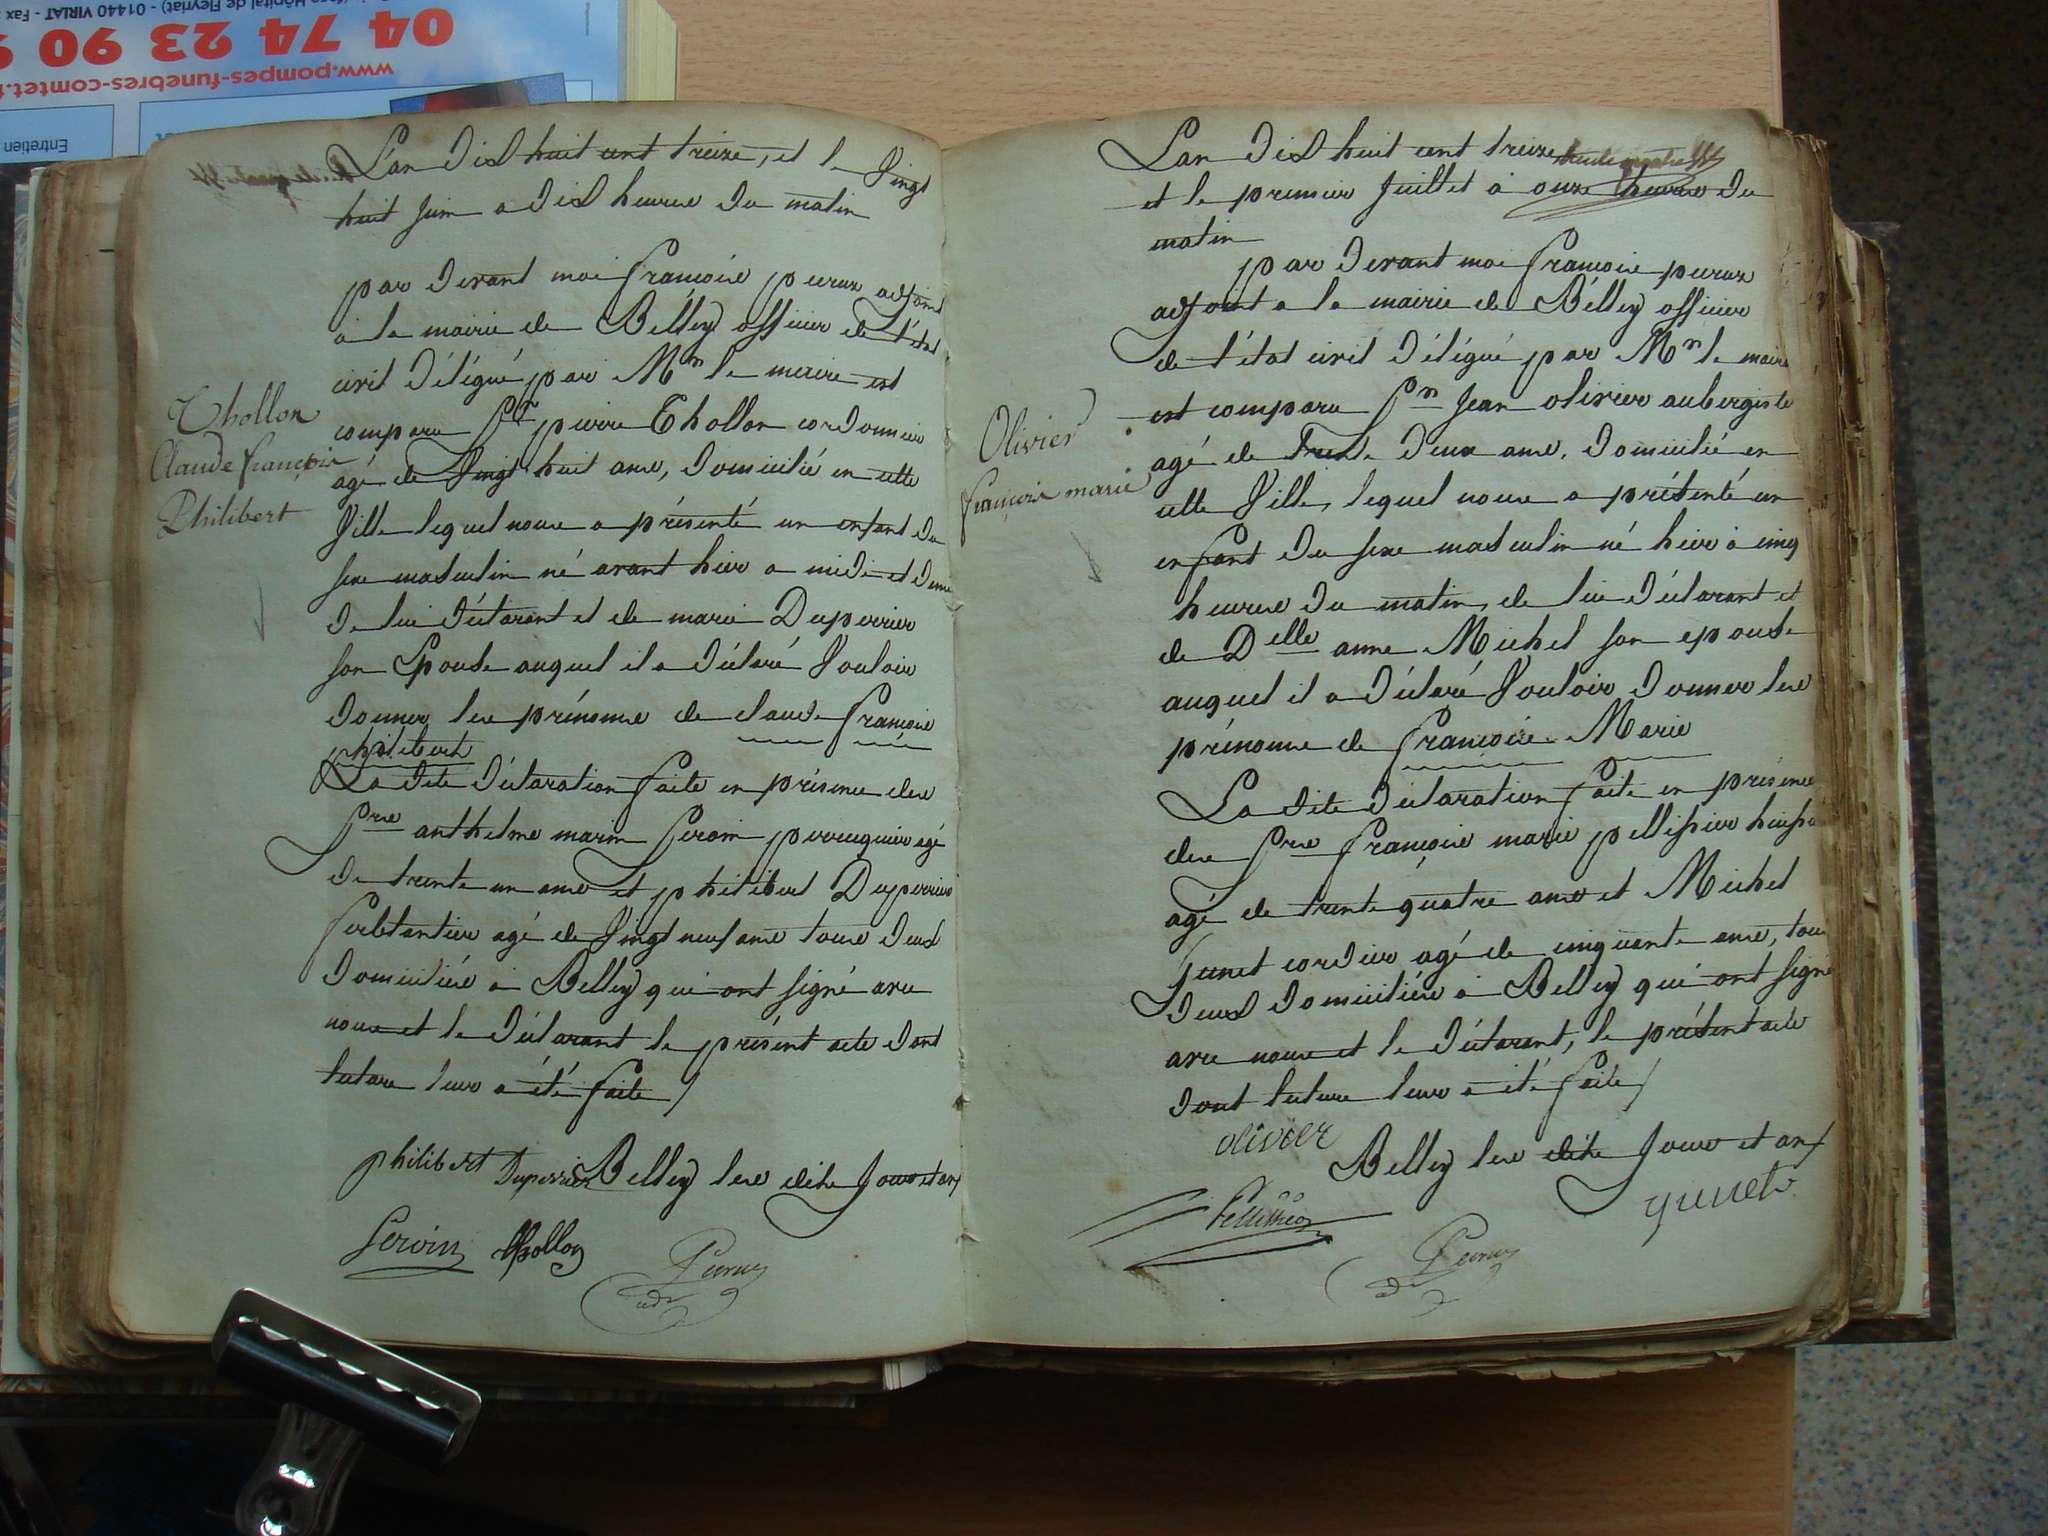 (face Hôpital de Fleyriat) - 01440 VIRIAT - Fax
04 74 23 90
www.pompes-funebres-comtet.f
Entretien
L'an dix huit cent treize, et le vingt
huit Juin a dix heures du matin
par devant moi françois peruz adjoint
à la mairie de Belley officier de l'état
civil délégué par Mr le maire est
comparu Sr pierre Thollon cordonnier
agé de vingt huit ans, domicilié en cette
Ville lequel nous a présenté un enfant du
sexe masculin né avant hier a midi et demi
de lui déclarant et de marie Duperrier
son Epouse auquel il a déclaré Vouloir
donner les prénoms de claude françois
philibert
La dite déclaration faite en présence des
Srs anthelme marin perruquier agé
de trente un ans et philibert Duperrier
agé de Vingt neuf ans tous deux
domiciliés a Belley qui ont signé avec
nous et le déclarant le présent acte dont
lecture leur a été faite /
Thollon
Claude françois
Philibert
philibert Duperrier Belley les dits Jour et an
Thollon
Peruz
adt
L'an dix huit cent treize
et le premier Juillet à onze heures du
matin
par devant moi françois peruz
adjoint a la mairie de Belley officier
de l'état civil délégué par Mr le maire
est comparu Sr Jean olivier aubergiste
agé de trente deux ans, domicilié en
cette Ville, lequel nous a présenté un
enfant du sexe masculin né hier à cinq
heures du matin, de lui déclarant et
de Delle anne Michel son epouse
auquel il a déclaré Vouloir donner les
prénoms de françois Marie
La dite déclaration faite en présence
des Srs françois marie pellissier
agé de trente quatre ans et Michel
Junet cordier agé de cinquante ans, tous
deux domiciliés à Belley qui ont signé
avec nous et le déclarant, le présent acte
dont lecture leur a été faite /
Olivier
françois marie
olivier
Belley les dits Jour et an /
Pellissier
Junet
Peruz
adt